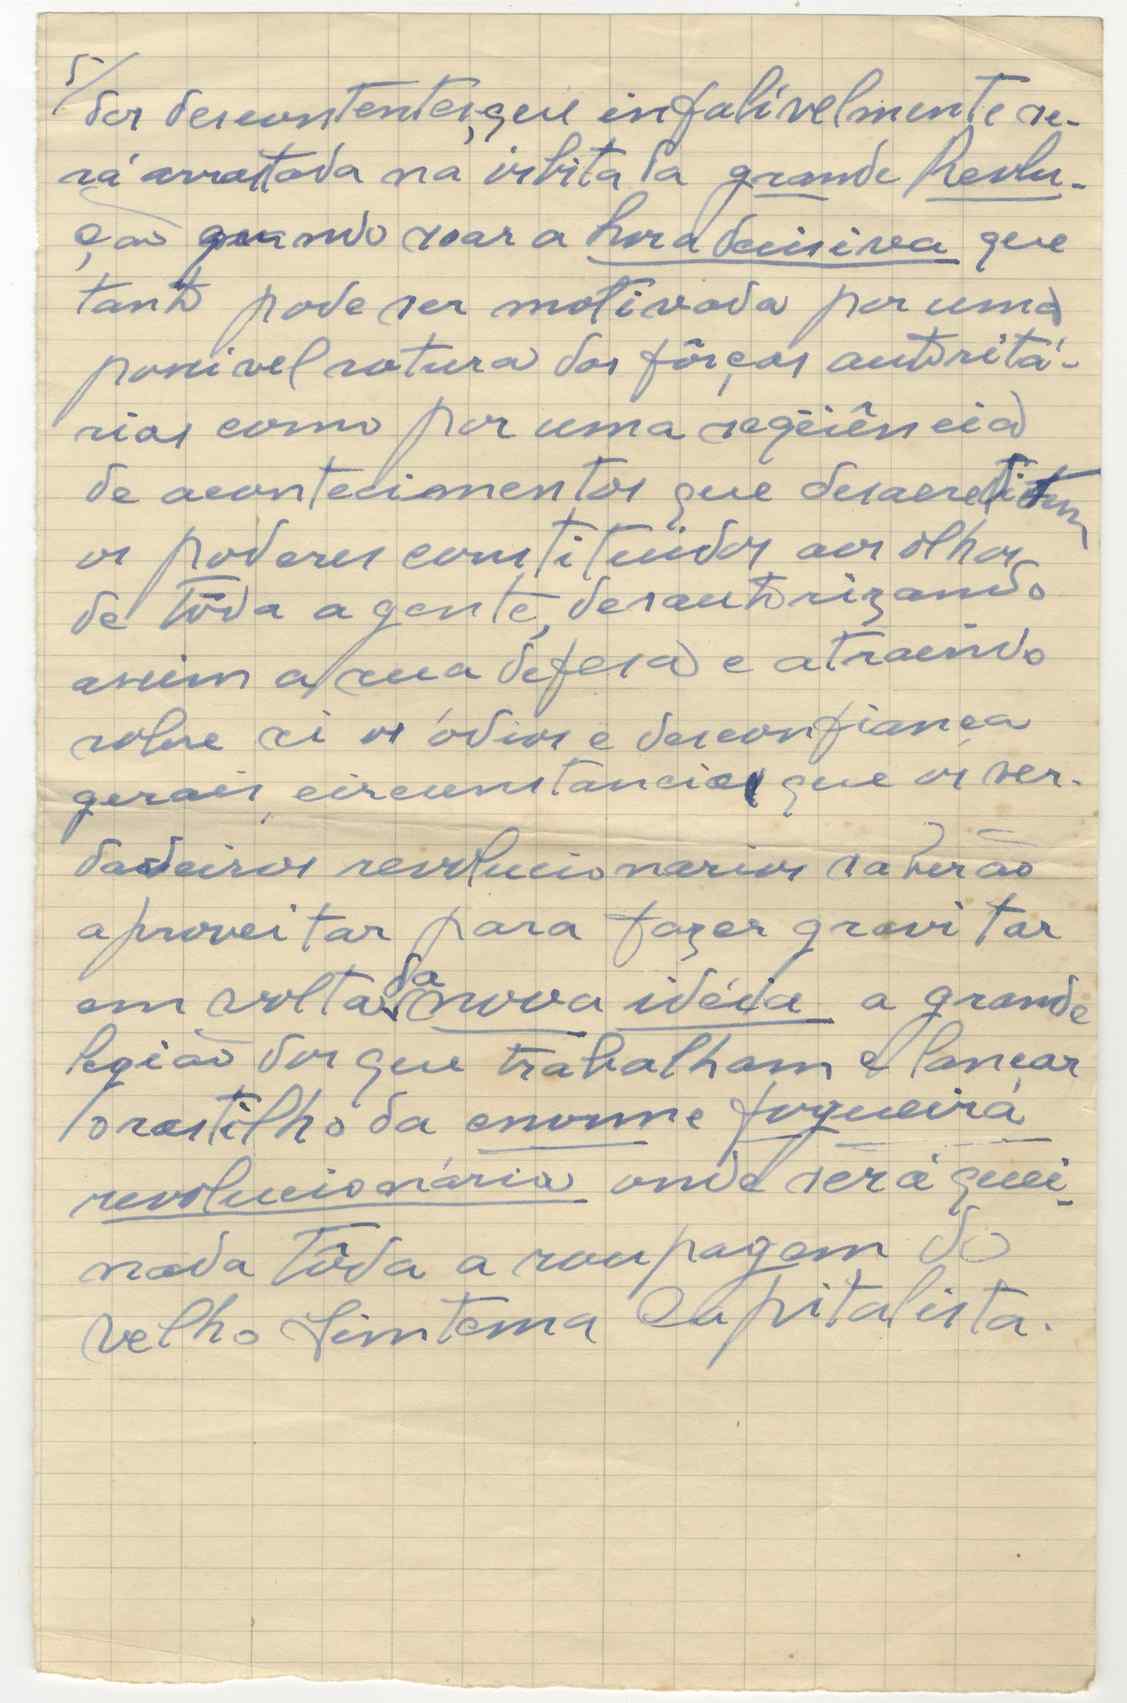 5/
dos descontentes, que infalívelmente se-
rá arrastada na órbita da grande Revolu-
ção quando soar a hora decisiva que
tanto pode ser motivada por uma
possivel rotura das fôrças autoritá-
rias como por uma seqüência
de acontecimentos que desacreditem
os poderes constituidos aos olhos
de tôda a gente, desautorizando
assim a sua defesa e atraindo
sobre si os ódios e desconfiança
gerais, circunstancias que os ver-
dadeiros revolucionarios saberão
aproveitar para fazer gravitar
em volta da nova idéia a grande
legião dos que trabalham e lançar
o rastilho da enorme fogueira
revolucionária onde será quei-
mada tôda a roupagem do
velho Simtema Capitalista.